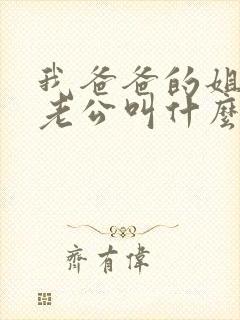 我爸爸的姐
老公叫什麼
齊有偉